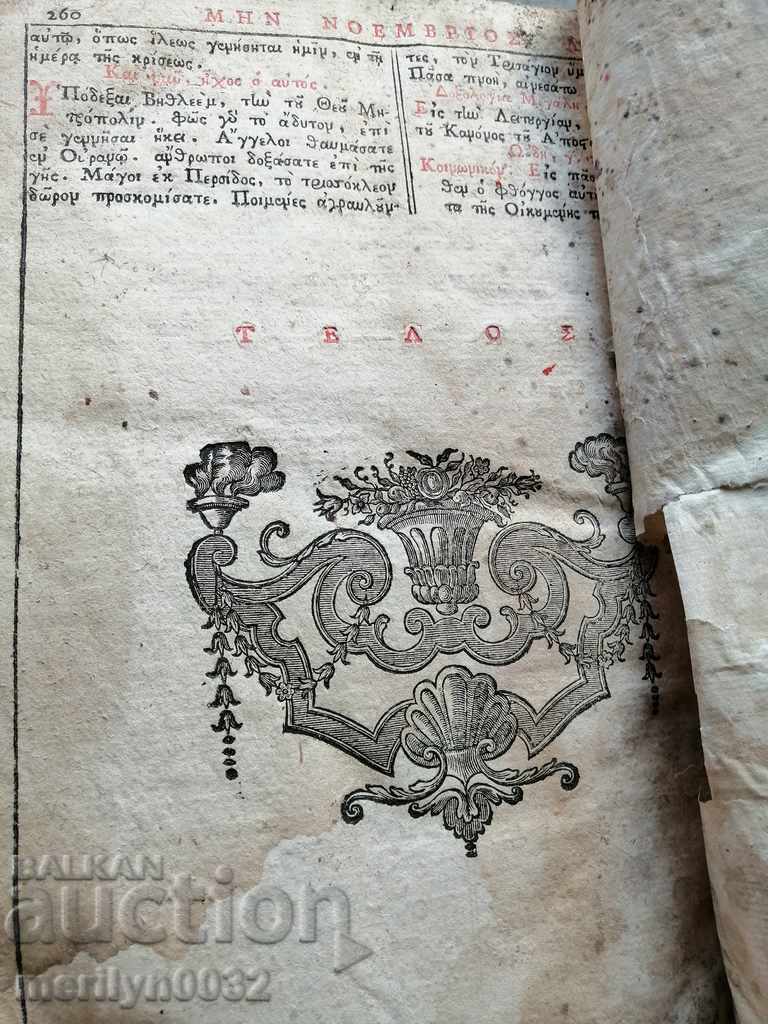 260
ΜΗΝ ΝΟΕΜΒΡΙΟΣ
αὐτῷ, ὅπως ἵλεως γενήσηται ἡμῖν, ἐν τῇ
ἡμέρᾳ τῆς κρίσεως.
Καὶ νῦν, ἦχος ὁ αὐτός.
ὙΠόδεξαι Βηθλεὲμ, τὴν τοῦ Θεοῦ Μη-
τρόπολιν. Φῶς γὰρ τὸ ἄδυτον, ἐπὶ
σὲ γεννῆσαι ἥκει. Ἄγγελοι θαυμάσατε
ἐν Οὐρανῷ. ἄνθρωποι δοξάσατε ἐπὶ τῆς
γῆς. Μάγοι ἐκ Περσίδος, τὸ τρισόκλεον
δῶρον προσκομίσατε. Ποιμένες ἀγραυλοῦν-
τες, τὸν Τρισάγιον ὕμ
Πᾶσα πνοὴ, αἰνεσάτω
Δοξολογία Μεγάλη
Εἰς τὴν Λειτουργίαν,
τοῦ Κανόνος τοῦ Ἀποσ
ᾨδὴ, γ
Κοινωνικόν. Εἰς πᾶσ
θεν ὁ φθόγγος αὐτ
τα τῆς Οἰκουμένης
ΤΕΛΟΣ
BALKAN
auction
merilyn0032